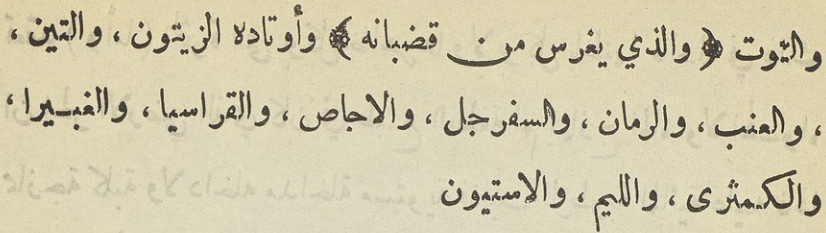 والتوت ﴿ والذي يغرس من قضبانه ﴾ وأوتاده الزيتون ، والتين ،
، والعنب ، والرمان ، والسفرجل ، والاجاص ، والقراسيا ، والغبيرا ،
والكمثرى ، والليم ، والاستيون